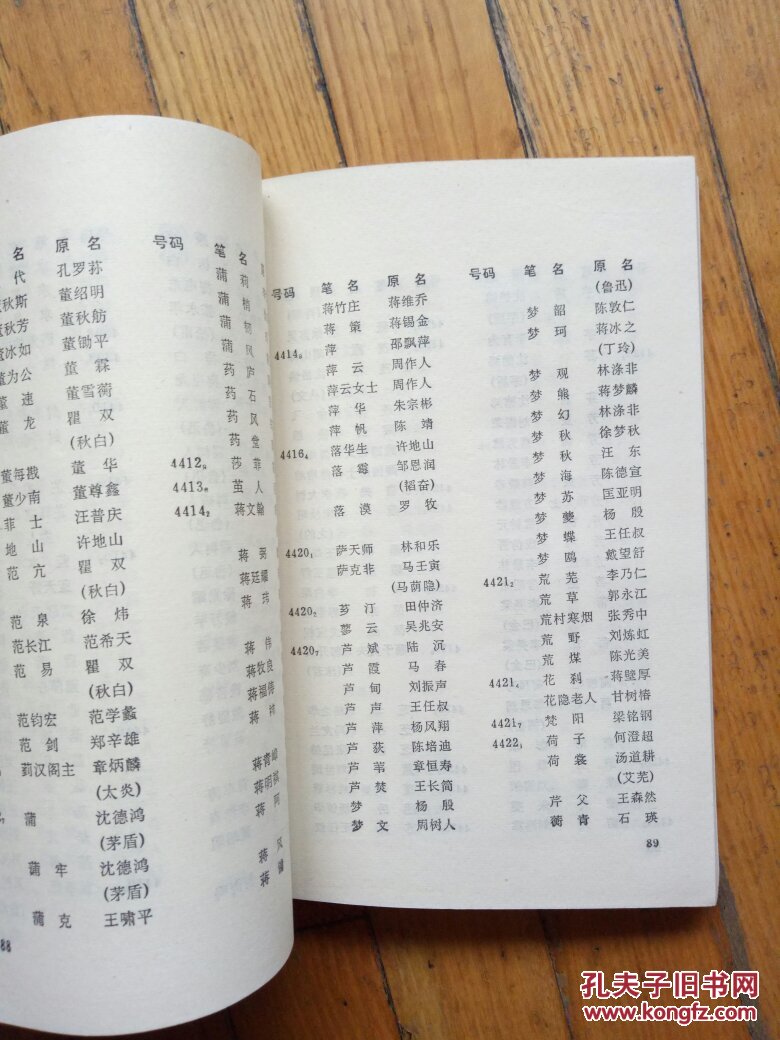 名 原名
代 孔罗荪
董秋斯 董绍明
董秋芳 董秋舫
董冰如 董锄平
董为公 董霖
董速 董雪蘅
董龙 瞿双
(秋白)
董每戡 董华
董少南 董尊鑫
菲士 汪普庆
地山 许地山
范亢 瞿双
(秋白)
范泉 徐炜
范长江 范希天
范易 瞿双
(秋白)
范钧宏 范学蠡
范剑 郑辛雄
菿汉阁主 章炳麟
(太炎)
蒲 沈德鸿
(茅盾)
蒲牢 沈德鸿
(茅盾)
蒲克 王啸平
88
号码 笔名
蒲莉
蒲梢
蒲韧
蒲风
药庐
药石
药风
药堂
4412₉ 莎菲
4413₆ 茧人
4414₂ 蒋文翰
蒋弼
蒋廷耀
蒋玮
蒋伟
蒋牧良
蒋福俦
蒋祎
蒋青山
蒋明祺
蒋珂
蒋风
蒋健
号码 笔名 原名
蒋竹庄 蒋维乔
蒋策 蒋锡金
4414₉ 萍 邵飘萍
萍云 周作人
萍云女士 周作人
萍华 朱宗彬
萍帆 陈靖
4416₄ 落华生 许地山
落霉 邹恩润
(韬奋)
落漠 罗牧
4420₁ 萨天师 林和乐
萨克非 马王寅
(马荫隐)
4420₂ 芗汀 田仲济
蓼云 吴兆安
4420₇ 芦斌 陆沉
芦霞 马春
芦甸 刘振声
芦声 王任叔
芦萍 杨风翔
芦荻 陈培迪
芦苇 章恒寿
芦焚 王长简
梦 杨殷
梦文 周树人
号码 笔名 原名
(鲁迅)
梦韶 陈敦仁
梦珂 蒋冰之
(丁玲)
梦观 林涤非
梦熊 蒋梦麟
梦幻 林涤非
梦秋 徐梦秋
梦秋 汪东
梦海 陈德宣
梦苏 匡亚明
梦夔 杨殷
梦蝶 王任叔
梦鸥 戴望舒
4421₂ 荒芜 李乃仁
荒草 郭永江
荒村寒烟 张秀中
荒野 刘炼虹
荒煤 陈光美
4421₄ 花刹 蒋壁厚
花隐老人 甘树椿
4421₇ 梵阳 梁铭钢
4422₁ 荷子 何澄超
荷裳 汤道耕
(艾芜)
芹父 王森然
蘅青 石瑛
89
孔夫子旧书网
www.kongfz.com